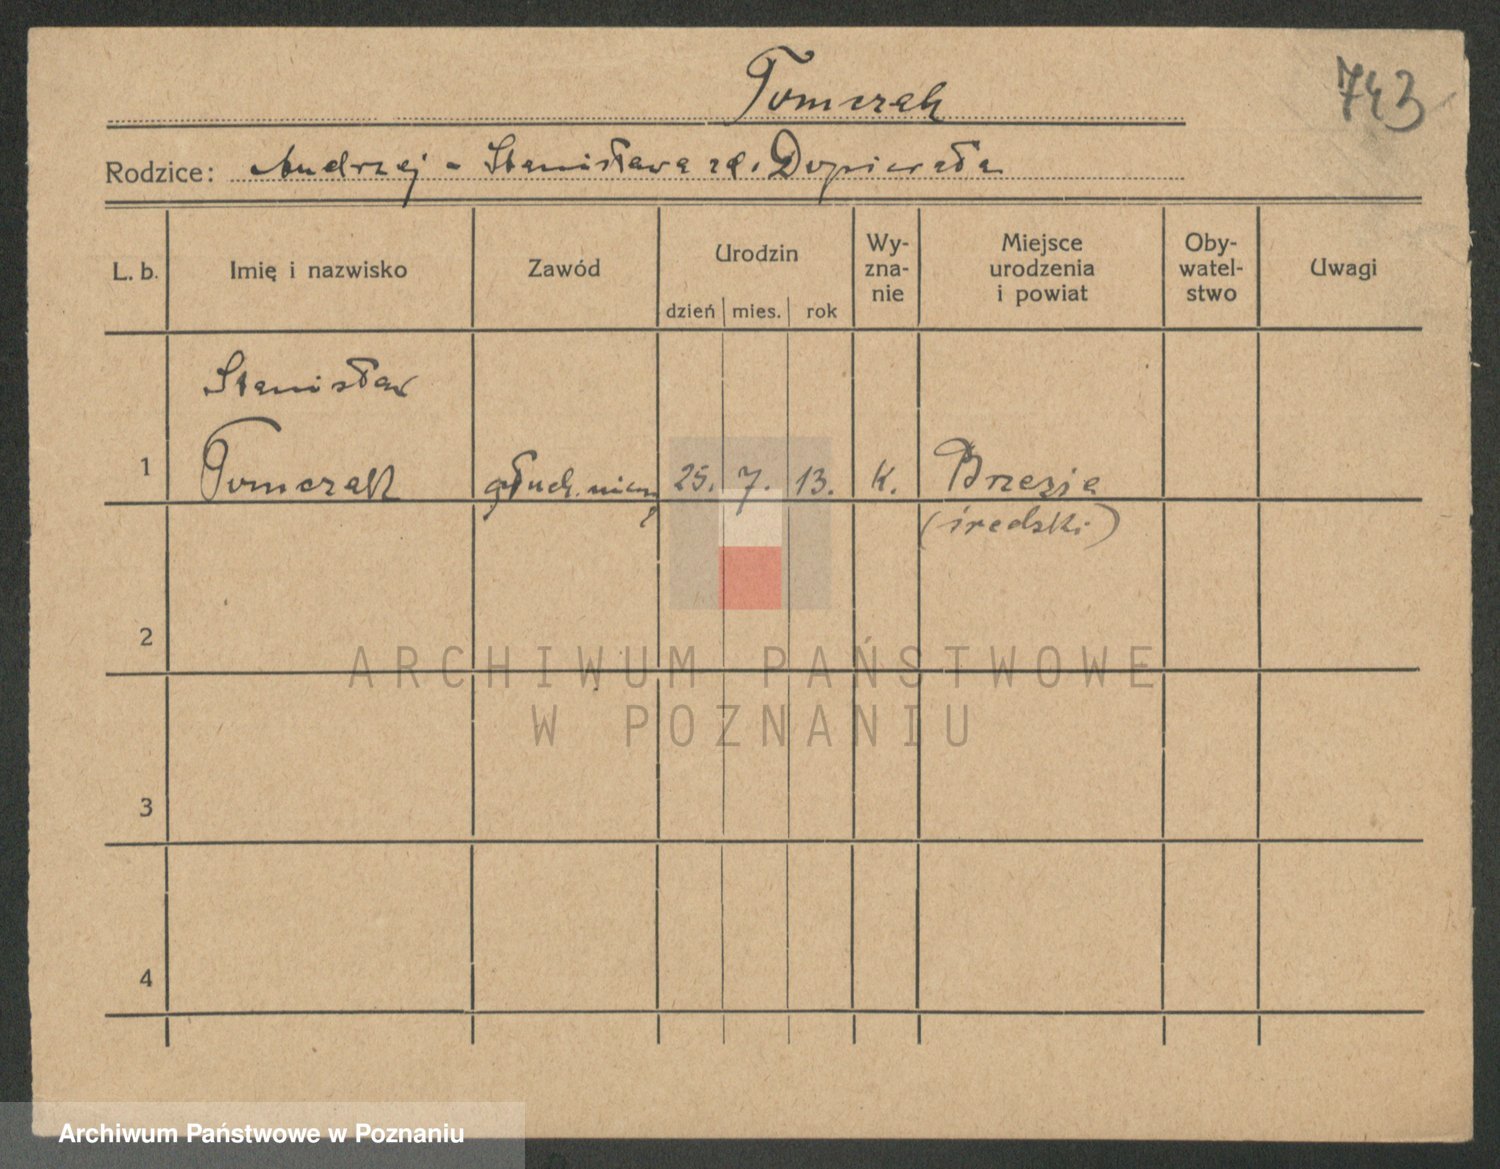 Tomczak
743
Rodzice: Andrzej - Stanisława zd. Dopierała
L. b. Imię i nazwisko Zawód Urodzin Wy-zna-nie Miejsce urodzenia i powiat Oby-watel-stwo Uwagi
dzień mies. rok
Stanisław
1 Tomczak 25. 7. 13. K. Brzezie
(średzki)
2
3
4
ARCHIWUM PAŃSTWOWE
W POZNANIU
Archiwum Państwowe w Poznaniu